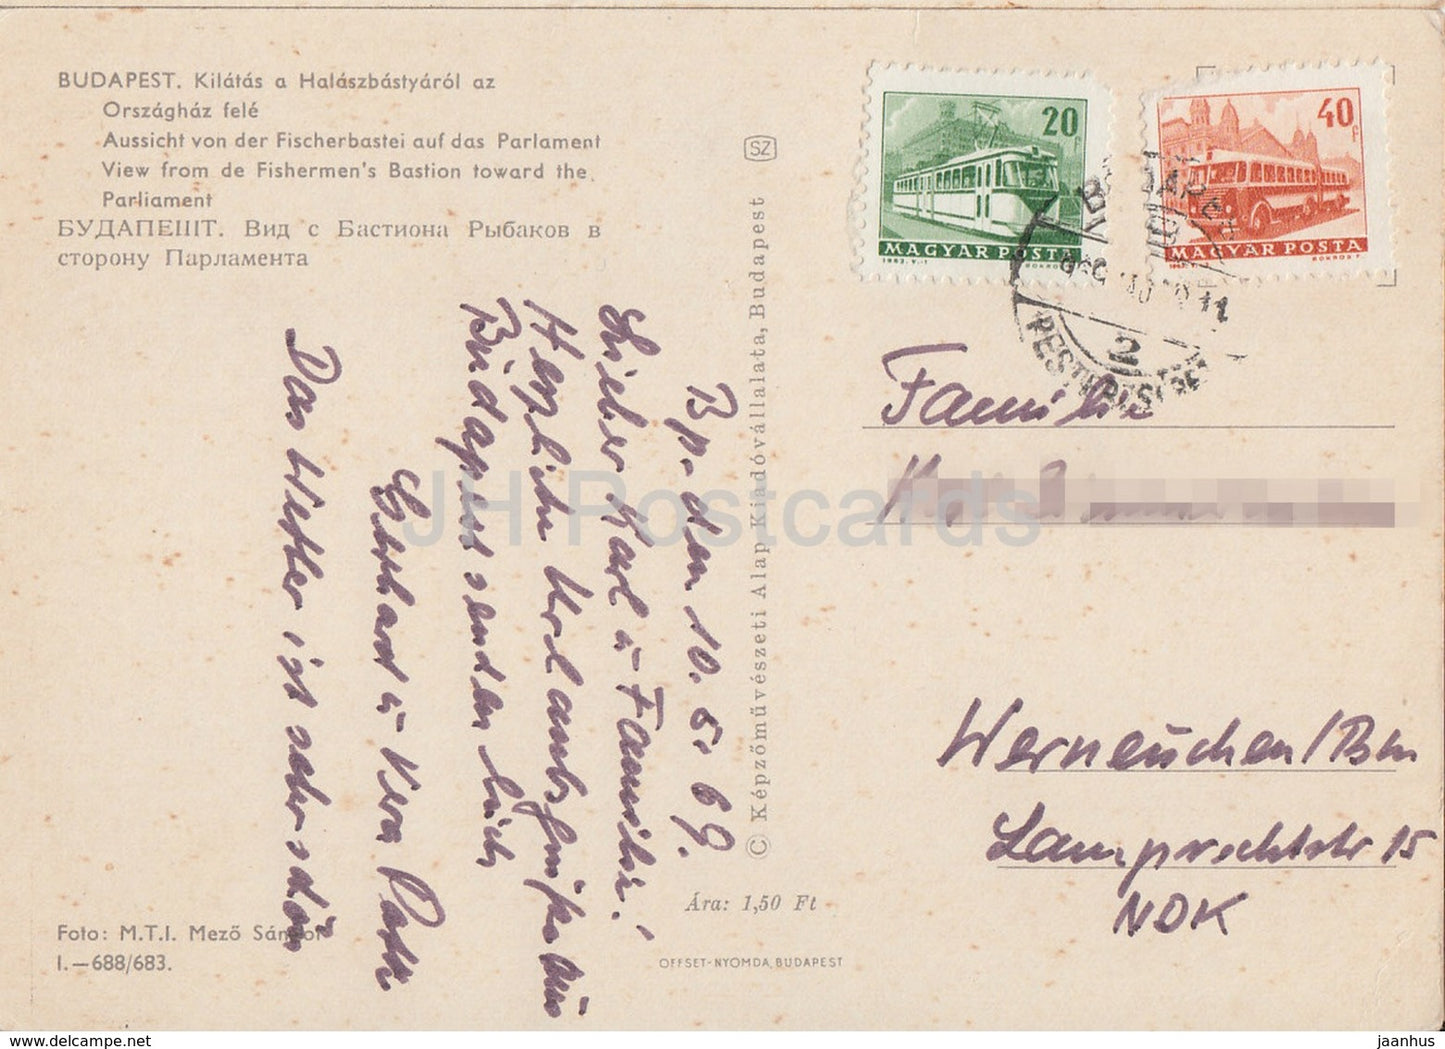 BUDAPEST. Kilátás a Halászbástyáról az
Országház felé
Aussicht von der Fischerbastei auf das Parlament
View from de Fishermen's Bastion toward the
Parliament
БУДАПЕШТ. Вид с Бастиона Рыбаков в
сторону Парламента
SZ
20f
MAGYAR POSTA
40f
MAGYAR POSTA
2
Bp. den 10. 6. 69.
Lieber Karl u Familie!
Herzliche Urlaubsgrüße aus
Budapest senden Euch
Gerhard u Vera
Das Wetter ist sehr schön
© Képzőművészeti Alap Kiadóvállalata, Budapest
Familie
Werneuchen/Bln
Lamprechtstr 15
NDK
Ára: 1,50 Ft
Foto: M.T.I. Mező Sándor
I.—688/683.
OFFSET-NYOMDA, BUDAPEST
JH Postcards
www.delcampe.net
jaanhus